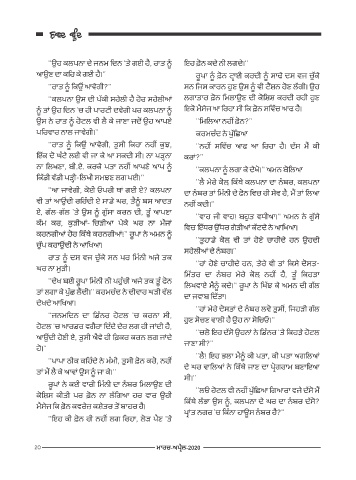 “ਉਹ ਕਲਪਨਾ ਦੇ ਜਨਮ ਦਿਨ ’ਤੇ ਗਈ ਹੈ, ਰਾਤ ਨੂੰ
ਆਉਣ ਦਾ ਕਹਿ ਕੇ ਗਈ ਹੈ।”
“ਰਾਤ ਨੂੰ ਕਿਉਂ ਆਵੇਗੀ?”
“ਕਲਪਨਾ ਉਸ ਦੀ ਪੱਕੀ ਸਹੇਲੀ ਹੈ ਹੋਰ ਸਹੇਲੀਆਂ
ਨੂੰ ਤਾਂ ਉਹ ਦਿਨ ’ਚ ਹੀ ਪਾਰਟੀ ਦਵੇਗੀ ਪਰ ਕਲਪਨਾ ਨੂੰ
ਉਸ ਨੇ ਰਾਤ ਨੂੰ ਹੋਟਲ ਵੀ ਲੈ ਕੇ ਜਾਣਾ ਜਦੋਂ ਉਹ ਆਪਣੇ
ਪਰਿਵਾਰ ਨਾਲ ਜਾਵੇਗੀ।”
“ਰਾਤ ਨੂੰ ਕਿਉਂ ਆਵੇਗੀ, ਤੁਸੀ ਕਿਹਾ ਨਹੀਂ ਕੁਝ,
ਇੱਕ ਦੋ ਘੰਟੇ ਲਗੀ ਵੀ ਜਾ ਕੇ ਆ ਸਕਦੀ ਸੀ। ਨਾ ਪੜ੍ਹਨਾ
ਨਾ ਲਿਖਣਾ, ਬੀ.ਏ. ਕਰਕੇ ਪਤਾ ਨਹੀਂ ਆਪਣੇ ਆਪ ਨੂੰ
ਕਿੰਨੀ ਵੱਡੀ ਪੜ੍ਹੀ-ਲਿਖੀ ਸਮਝਣ ਲਗ ਪਈ।”
“ਆ ਜਾਵੇਗੀ, ਕੋਈ ਓਪਰੀ ਥਾਂ ਗਈ ਏ? ਕਲਪਨਾ
ਵੀ ਤਾਂ ਆਉਂਦੀ ਰਹਿੰਦੀ ਏ ਸਾਡੇ ਘਰ, ਤੈਨੂੰ ਬਸ ਆਦਤ
ਏ, ਗੱਲ-ਗੱਲ ’ਤੇ ਉਸ ਨੂੰ ਗੁੱਸਾ ਕਰਨ ਦੀ, ਤੂੰ ਆਪਣਾ
ਕੰਮ ਕਰ, ਕੁੜੀਆਂ-ਚਿੜੀਆਂ ਪੇਕੇ ਘਰ ਨਾ ਮੌਜਾਂ
ਕਰਨਗੀਆਂ ਹੋਰ ਕਿੱਥੇ ਕਰਨਗੀਆਂ।” ਰੂਪਾ ਨੇ ਅਮਨ ਨੂੰ
ਚੁੱਪ ਕਰਾਉਂਦੀ ਨੇ ਆਖਿਆ।
ਰਾਤ ਨੂੰ ਦਸ ਵਜ ਚੁੱਕੇ ਸਨ ਪਰ ਮਿੰਨੀ ਅਜੇ ਤਕ
ਘਰ ਨਾ ਮੁੜੀ।
“ਦੇਖ ਬਈ ਰੂਪਾ ਮਿੰਨੀ ਨੀ ਪਹੁੰਚੀ ਅਜੇ ਤਕ ਤੂੰ ਫੋਨ
ਤਾਂ ਲਗਾ ਕੇ ਪੁੱਛ ਲੈਂਦੀ।” ਕਰਮਚੰਦ ਨੇ ਦੀਵਾਰ ਘੜੀ ਵੱਲ
ਦੇਖਦੇ ਆਖਿਆ।
“ਜਨਮਦਿਨ ਦਾ ਡਿੱਨਰ ਹੋਟਲ ’ਚ ਕਰਨਾ ਸੀ.
ਹੋਟਲ ’ਚ ਆਰਡਰ ਵਗੈਰਾ ਦਿੰਦੇ ਦੇਰ ਲਗ ਹੀ ਜਾਂਦੀ ਹੈ,
ਆਉਂਦੀ ਹੋਣੀ ਏ, ਤੁਸੀ ਐਵੇਂ ਹੀ ਫ਼ਿਕਰ ਕਰਨ ਲਗ ਜਾਂਦੇ
ਹੋ।”
“ਪਾਪਾ ਠੀਕ ਕਹਿੰਦੇ ਨੇ ਮੰਮੀ, ਤੁਸੀ ਫ਼ੋਨ ਕਰੋ, ਨਹੀਂ
ਤਾਂ ਮੈਂ ਲੈ ਕੇ ਆਵਾਂ ਉਸ ਨੂੰ ਜਾ ਕੇ।”
ਰੂਪਾ ਨੇ ਕਈ ਵਾਰੀ ਮਿੰਨੀ ਦਾ ਨੰਬਰ ਮਿਲਾਉਣ ਦੀ
ਕੋਸ਼ਿਸ਼ ਕੀਤੀ ਪਰ ਫ਼ੋਨ ਨਾ ਲੱਗਿਆ ਹਰ ਵਾਰ ਉਹੀ
ਮੈਸੇਜ ਕਿ ਫ਼ੋਨ ਕਵਰੇਜ ਕਸ਼ੇਤਰ ਤੋਂ ਬਾਹਰ ਹੈ।
“ਇਹ ਕੀ ਫ਼ੋਨ ਹੀ ਨਹੀਂ ਲਗ ਰਿਹਾ, ਲੋੜ ਪੈਣ ’ਤੇ
ਇਹ ਫ਼ੋਨ ਕਦੇ ਨੀ ਲਗਦੇ।”
ਰੂਪਾ ਨੂੰ ਫ਼ੋਨ ਟ੍ਰਾਈ ਕਰਦੀ ਨੂੰ ਸਾਢੇ ਦਸ ਵਜ ਚੁੱਕੇ
ਸਨ ਜਿਸ ਕਾਰਨ ਹੁਣ ਉਸ ਨੂੰ ਵੀ ਟੈਂਸ਼ਨ ਹੋਣ ਲੱਗੀ। ਉਹ
ਲਗਾਤਾਰ ਫ਼ੋਨ ਮਿਲਾਉਣ ਦੀ ਕੋਸ਼ਿਸ਼ ਕਰਦੀ ਰਹੀ ਹੁਣ
ਇਕੋ ਮੈਸੇਜ ਆ ਰਿਹਾ ਸੀ ਕਿ ਫ਼ੋਨ ਸਵਿੱਚ ਆਫ ਹੈ।
“ਮਿਲਿਆ ਨਹੀਂ ਫ਼ੋਨ?”
ਕਰਮਚੰਦ ਨੇ ਪੁੱਛਿਆ
“ਨਹੀਂ ਸਵਿੱਚ ਆਫ ਆ ਰਿਹਾ ਹੈ। ਦੱਸ ਮੈਂ ਕੀ
ਕਰਾਂ?”
“ਕਲਪਨਾ ਨੂੰ ਲਗਾ ਕੇ ਦੇਖੋ।” ਅਮਨ ਬੋਲਿਆ
“ਲੈ ਮੇਰੇ ਕੋਲ ਕਿੱਥੇ ਕਲਪਨਾ ਦਾ ਨੰਬਰ, ਕਲਪਨਾ
ਦਾ ਨੰਬਰ ਤਾਂ ਮਿੰਨੀ ਦੇ ਫ਼ੋਨ ਵਿਚ ਹੀ ਸੇਵ ਹੈ, ਮੈਂ ਤਾਂ ਲਿਆ
ਨਹੀਂ ਕਦੀ।”
“ਵਾਹ ਜੀ ਵਾਹ! ਬਹੁਤ ਵਧੀਆ।” ਅਮਨ ਨੇ ਗੁੱਸੇ
ਵਿਚ ਇੱਧਰ ਉੱਧਰ ਗੇੜੀਆਂ ਕੱਟਦੇ ਨੇ ਆਖਿਆ।
“ਤੁਹਾਡੇ ਕੋਲ ਵੀ ਤਾਂ ਹੋਣੇ ਚਾਹੀਦੇ ਹਨ ਉਹਦੀ
ਸਹੇਲੀਆਂ ਦੇ ਨੰਬਰ।”
“ਹਾਂ ਹੋਣੇ ਚਾਹੀਦੇ ਹਨ, ਤੇਰੇ ਵੀ ਤਾਂ ਕਿਸੇ ਦੋਸਤ-
ਮਿੱਤਰ ਦਾ ਨੰਬਰ ਮੇਰੇ ਕੋਲ ਨਹੀਂ ਹੈ, ਤੂੰ ਕਿਹੜਾ
ਲਿਖਵਾਏ ਮੈਨੂੰ ਕਦੇ।” ਰੂਪਾ ਨੇ ਖਿੱਝ ਕੇ ਅਮਨ ਦੀ ਗੱਲ
ਦਾ ਜਵਾਬ ਦਿੱਤਾ।
“ਹਾਂ ਮੇਰੇ ਦੋਸਤਾਂ ਦੇ ਨੰਬਰ ਲਵੋ ਤੁਸੀਂ, ਜਿਹੜੀ ਗੱਲ
ਹੁਣ ਸੋਚਣ ਵਾਲੀ ਹੈ ਉਹ ਨਾ ਸੋਚਿਓ।”
“ਚਲੋ ਇਹ ਦੱਸੋ ਉਹਨਾਂ ਨੇ ਡਿੱਨਰ ’ਤੇ ਕਿਹੜੇ ਹੋਟਲ
ਜਾਣਾ ਸੀ?”
“ਲੈ! ਇਹ ਭਲਾ ਮੈਨੂੰ ਕੀ ਪਤਾ, ਕੀ ਪਤਾ ਅਗਲਿਆਂ
ਦੇ ਘਰ ਵਾਲਿਆਂ ਨੇ ਕਿੱਥੇ ਜਾਣ ਦਾ ਪ੍ਰੋਗਰਾਮ ਬਣਾਇਆ
ਸੀ।”
“ਲਓ ਹੋਟਲ ਵੀ ਨਹੀਂ ਪੁੱਛਿਆ ਗਿਆਰਾਂ ਵਜੇ ਦੱਸੋ ਮੈਂ
ਕਿੱਥੇ ਲੱਭਾਂ ਉਸ ਨੂੰ, ਕਲਪਨਾ ਦੇ ਘਰ ਦਾ ਨੰਬਰ ਦੱਸੋ?
ਪ੍ਰੀਤ ਨਗਰ ’ਚ ਕਿੰਨਾ ਹਾਊਸ ਨੰਬਰ ਹੈ?”
20
ਮਾਰਚ-ਅਪ੍ਰੈਲ-2020